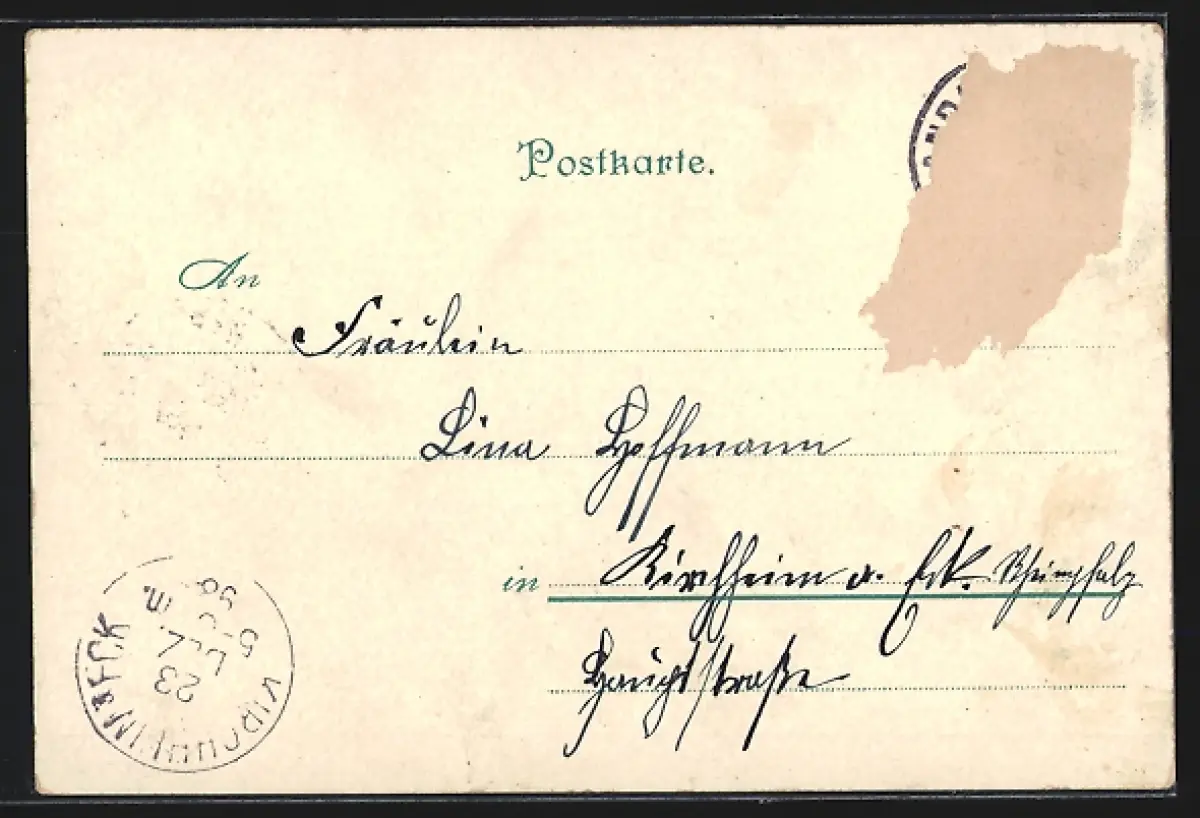 Postkarte.
An
Fräulein
Lina Hoffmann
in Kirchheim a. Eck. Rheinpfalz
Hauptstraße
KIRCHHEIM ECK
23